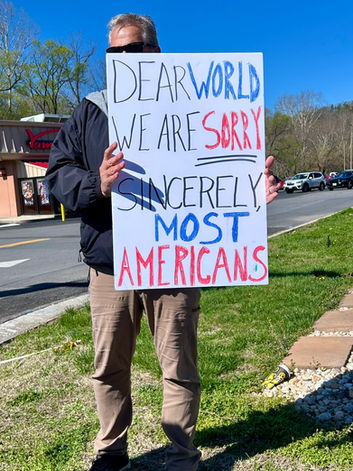 DEAR WORLD
WE ARE SORRY
SINCERELY,
MOST
AMERICANS